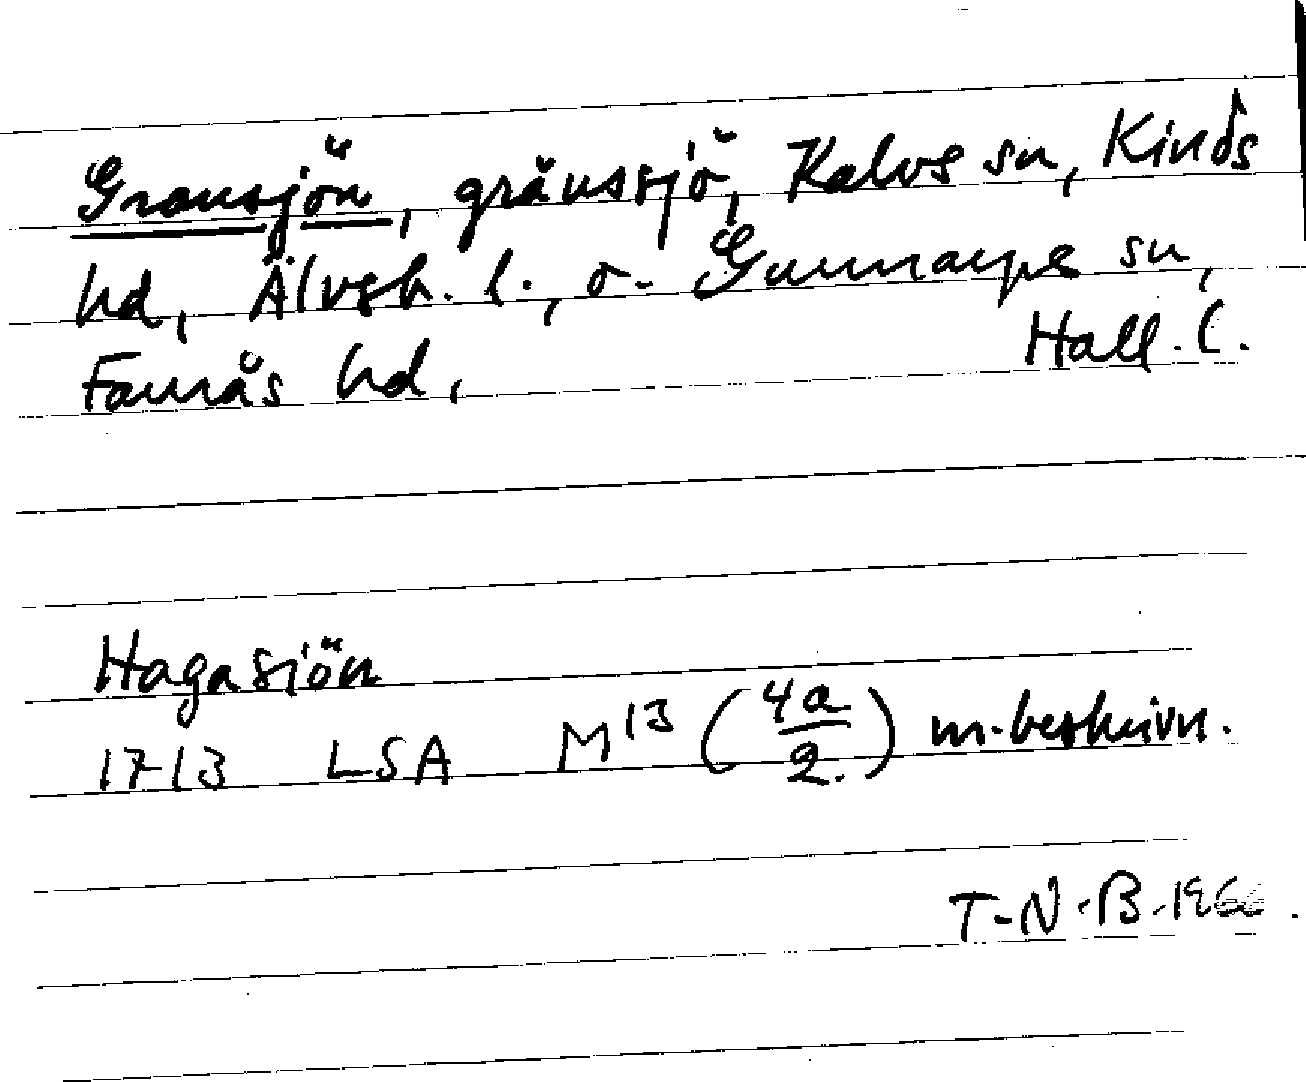 Gransjön, gränssjö, Kalvs sn, Kinds
hd, Älvsb. l., o. Gunnarps sn,
Faurås hd, Hall. l.
Hagasjön
1713 LSA M¹³ (4a/2.) m. beskrivn.
T-N.B. 1966.